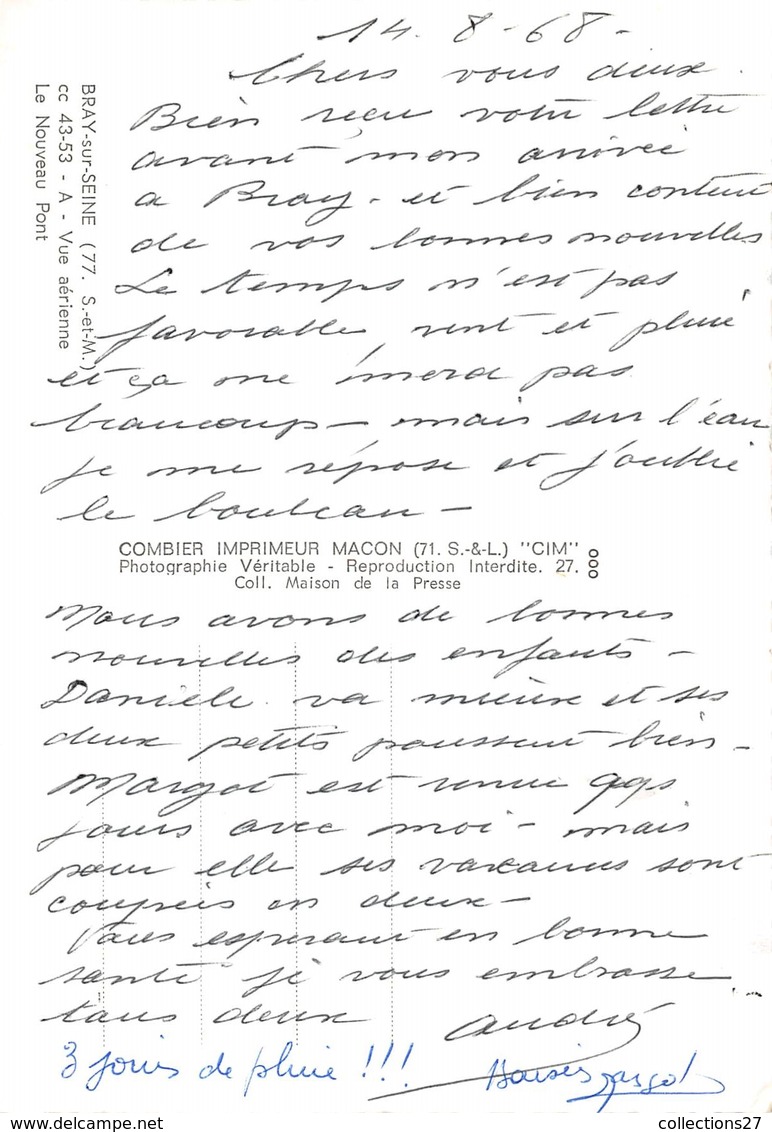 14-8-68-
Chers vous deux.
Bien reçu votre lettre
avant mon arrivée
a Bray- et bien content
de vos bonnes nouvelles
Le temps n'est pas
favorable, vent et pluie
et ça ne mord pas
beaucoup- mais sur l'eau
je me repose et j'oublie
le bouleau-
BRAY-sur-SEINE (77. S.-et-M.)
cc 43-53 - A - Vue aérienne
Le Nouveau Pont
COMBIER IMPRIMEUR MACON (71. S.-&-L.) "CIM"
Photographie Véritable - Reproduction Interdite. 27.
Coll. Maison de la Presse
Nous avons de bonnes
nouvelles des enfants-
Daniele va mieux et ses
deux petits poussent bien-
Margot est venue qqs
jours avec moi- mais
pour elle ses vacances sont
coupées en deux-
Vous esperant en bonne
santé je vous embrasse
tous deux André
3 jours de pluie !!! Baisers Margot
collections27